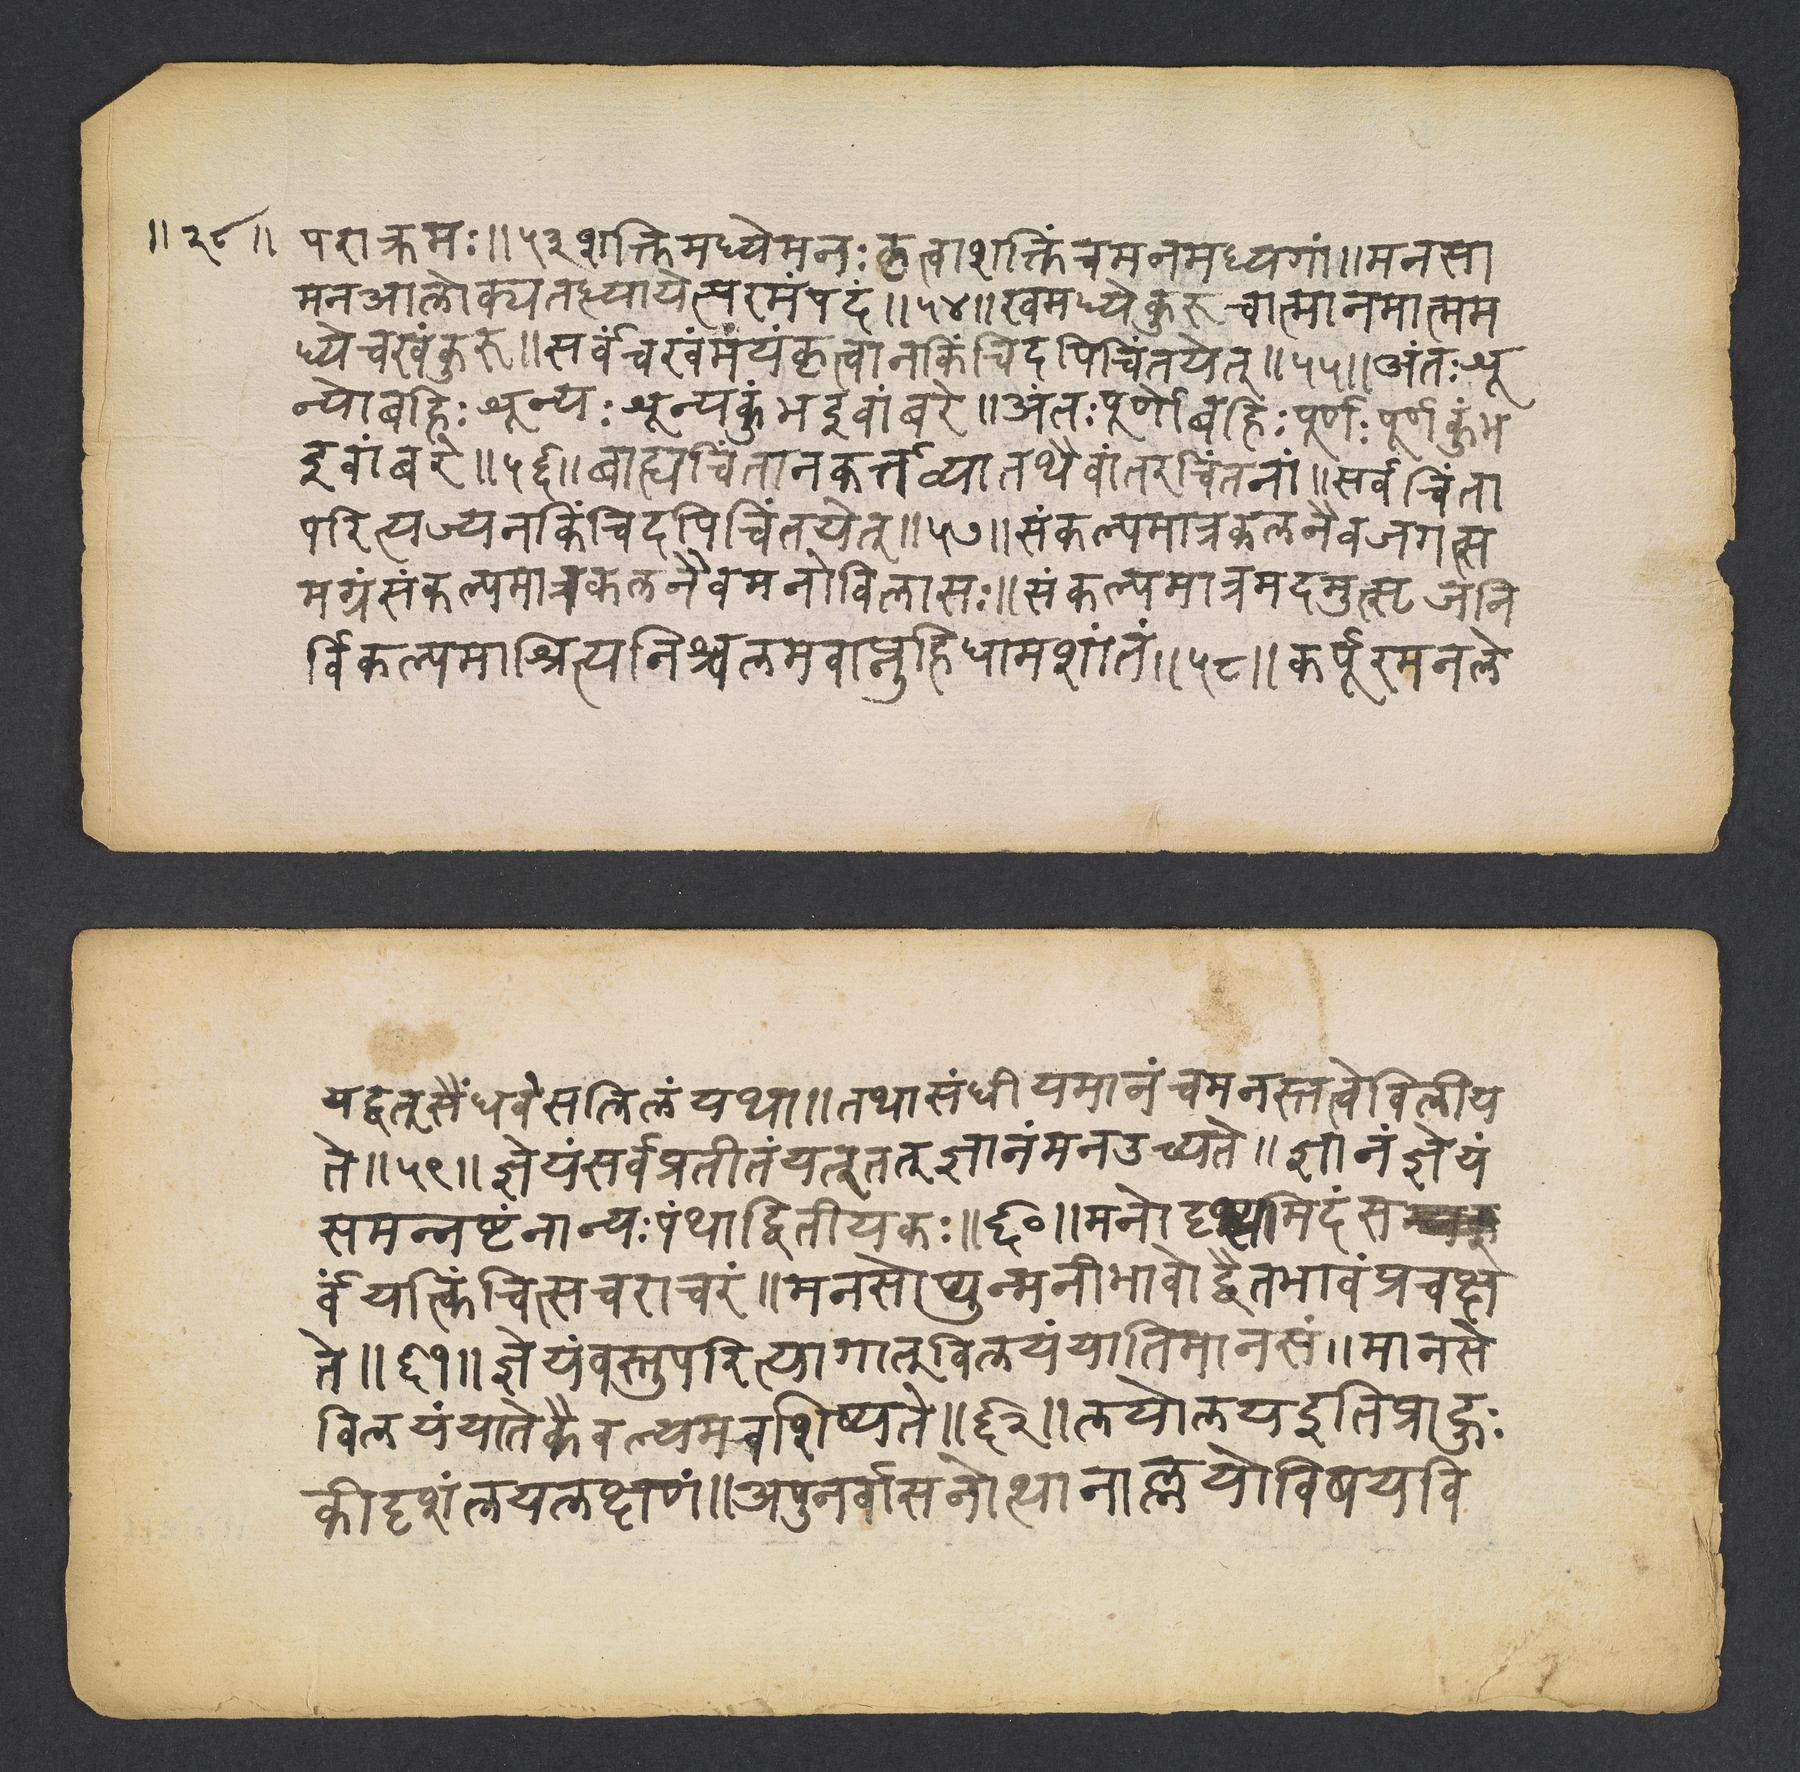 ॥२८॥ पराक्रमः॥५३शक्तिमध्येमनःकृत्वाशक्तिंचमनमध्यगां॥मनसा
मनआलोक्यतध्यायेत्परमंपदं॥५४॥खमध्येकुरूचात्मानमात्मम
ध्येचखंकुरू॥सर्वंचखंमंयंकृत्वानकिंचिदपिचिंतयेत्॥५५॥अंतःशू
न्योबहिःशून्यःशून्यकुंभइवांबरे॥अंतःपूर्णोबहिःपूर्णःपूर्णकुंभ
इवांबरे॥५६॥बाह्यचिंतानकर्त्तव्यातथैवांतरचिंतनां॥सर्वचिंता
परित्यज्यनकिंचिदपिचिंतयेत्॥५७॥संकल्पमात्रकलनैवजगत्स
मग्रंसंकल्पमात्रकलनैवमनोविलासः॥संकल्पमात्रमदमुत्सृजनि
र्विकल्पमाश्रित्यनिश्चलमवाप्नुहिधामशांतं॥५८॥कर्पूरमनले
यद्वत्सैंधवेसलिलंयथा॥तथासंधीयमानंचमनस्तत्वेविलीय
ते॥५९॥ज्ञेयंसर्वप्रतीतंयत्तत्ज्ञानंमनउच्यते॥ज्ञानंज्ञेयं
समन्नष्टंनान्यःपंथाद्वितीयकः॥६०॥मनोदृश्यमिदंस
र्वंयत्किंचित्सचराचरं॥मनसोप्युन्मनीभावोद्वैतभावंप्रचक्ष
ते॥६१॥ज्ञेयंवस्तुपरित्यागात्विलयंयातिमानसं॥मानसे
विलयंयातेकैवल्यमवशिष्यते॥६२॥लयोलयइतिप्राहुः
कीदृशंलयलक्षणं॥अपुनर्वासनोत्थानाल्लयोविषयवि